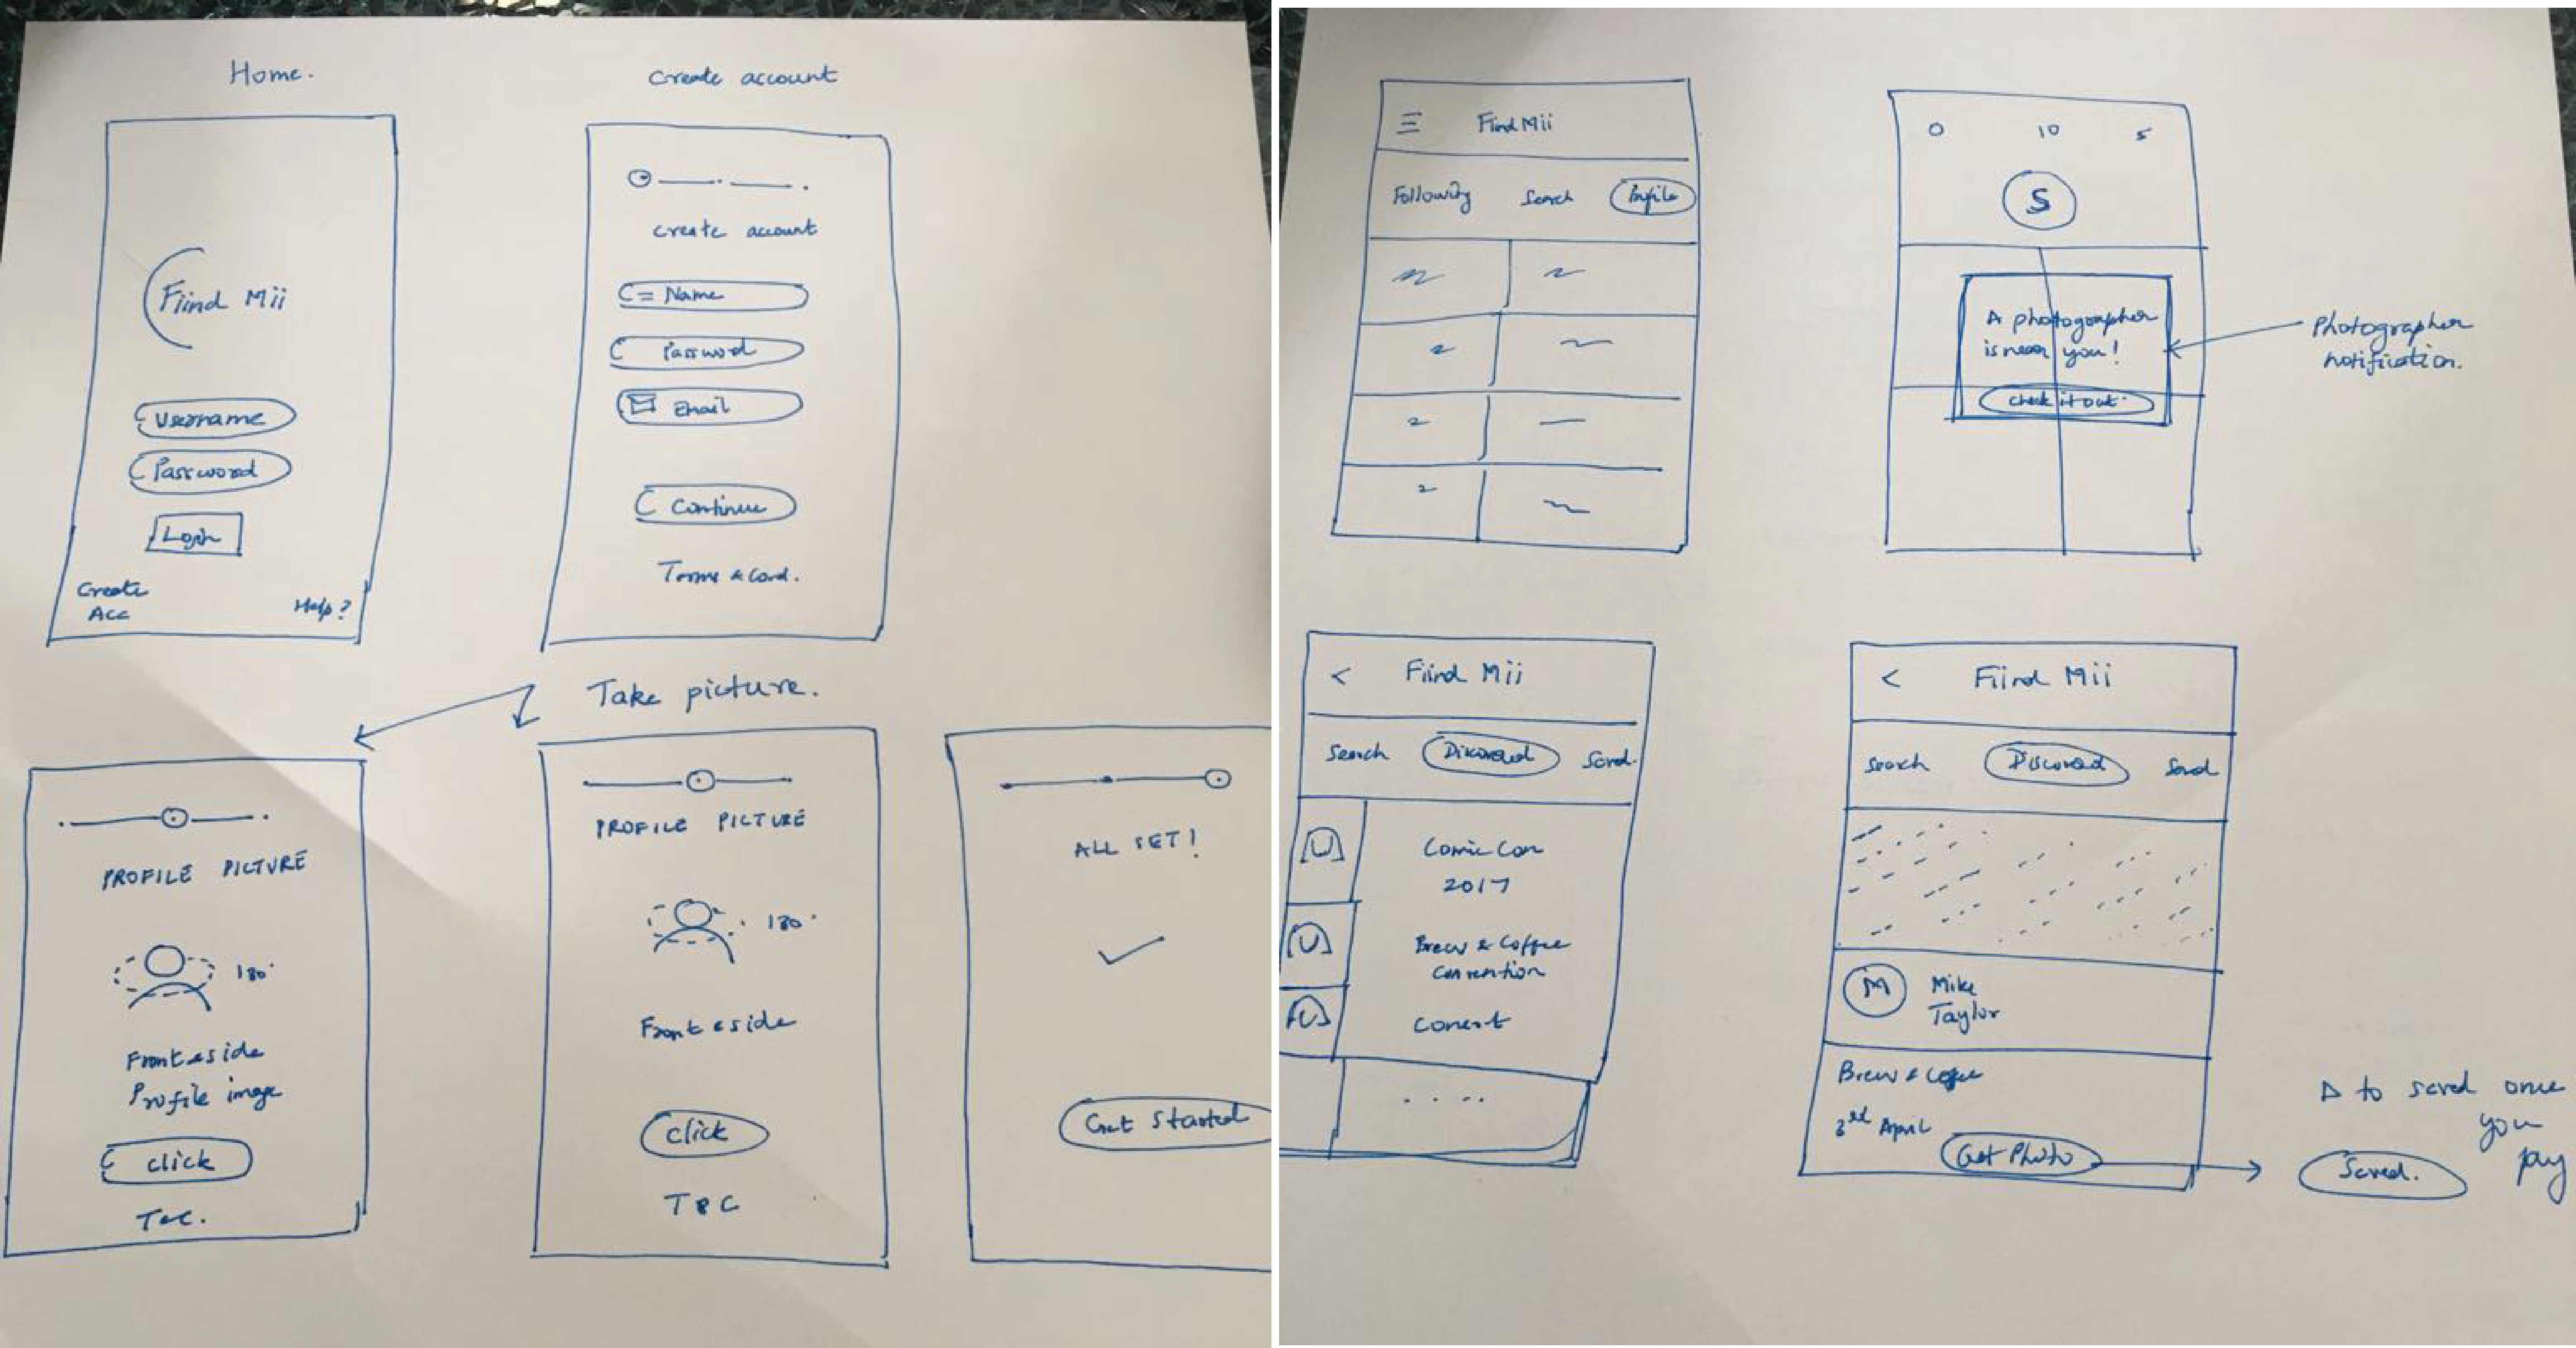 Home.
Create account
Fiind Mii
Username
Password
Login
Create
Acc
Help?
Create account
Name
Password
Email
Continue
Terms & Cond.
Take picture.
PROFILE PICTURE
180°
Front & side
Profile image
Click
T&C.
PROFILE PICTURE
180°
Front & side
Click
T&C
ALL SET!
Get Started
Fiind Mii
Following Search Profile
0 10 5
S
A photographer
is near you!
Check it out.
Photographer
notification.
< Fiind Mii
Search Discovered Saved.
Comic Con
2017
Brew & Coffee
Convention
Concert
. . . .
< Fiind Mii
Search Discovered Saved
M Mike
Taylor
Brew & Coffee
3rd April
Get Photo
to saved once
you
pay
Saved.